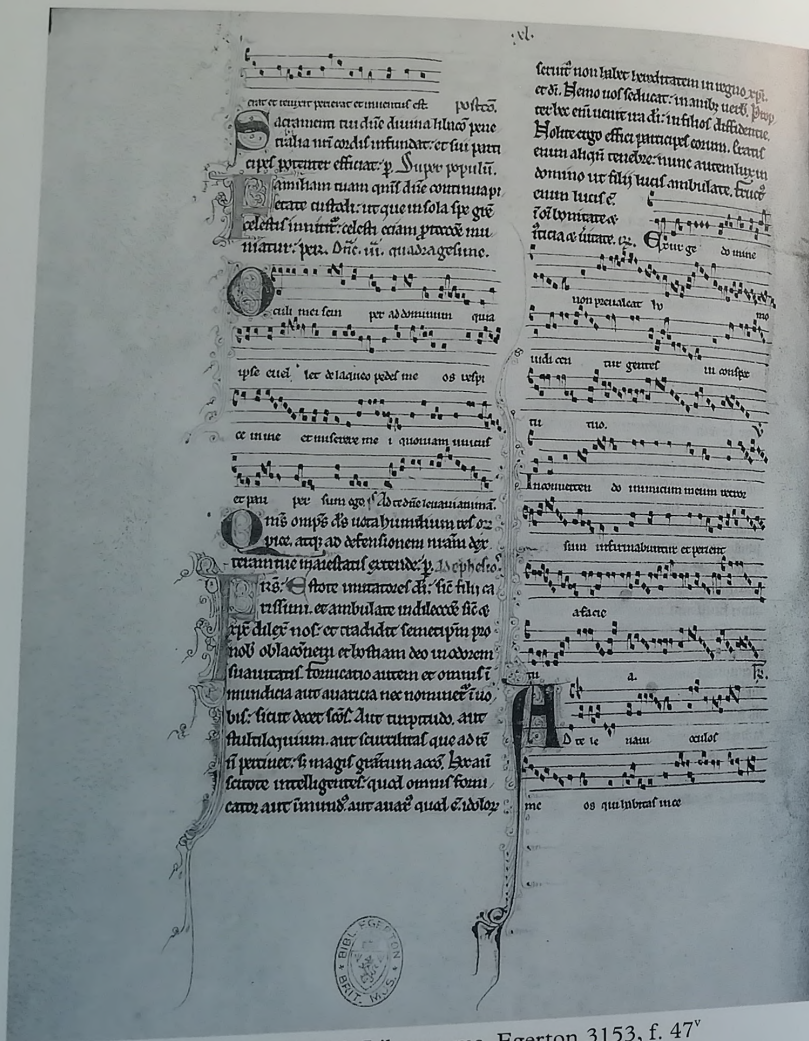 ·xl·
erat et reuixit perierat et inuentus est postcō.
Sacramenti tui dñe diuina libacō pene
tralia nr̄i cordis infundat: et sui parti
cipes potenter efficiat: p. Super populū.
Familiam tuam qm̄s dñe continua pi
etate custodi: ut que in sola spe grē
celestis innititr: celesti eciam p̄teccōe mu
niatur: per. Dnīc. iii. quadragesime.
Oculi mei sem per ad dominum quia
ipse euel let de laqueo pedes me os respi
ce in me et miserere me i quoniam unicus
et pau per sum ego. ps Ad te dñe leuaui animā.
Om̄s omps d's uota humilium res or
pice. atq ad defensionem nrām dex
teram tue maiestatis extende: p. Ad ephesios.
Frs: Estote imitatores di: sic filij ca
rissimi. et ambulate in dileccōe sic &
xpc dilex nos: et tradidit semetipm pro
nob oblacōnem et hostiam deo in odorem
suauitatis. fornicatio autem et omnis ī
mundicia aut auaricia nec nominetr ī uo
bis: sicut decet scōs. Aut turpitudo. aut
stultiloquium. aut scurilitas que ad rē
n̄ pertinet: s; magis grārum accō. Hoc aūt
scitote intelligentes: quod omnis forni
cator aut īmund9. aut auar9 quod ē. idolor
seruit9 non habet hereditatem in regno xpi.
et di. Nemo uos seducat: in anib; uerb. Prop
ter hec eni uenit ira di: in filios diffidentie.
Nolite ergo effici participes eorum. Eratis
enim aliqn̄ tenebre: nunc autem lux in
domino ut filij lucis ambulate. fruct9
enim lucis ē
ī ōī bonitate &
iusticia & uitate. gr. Exur ge do mine
non preualeat ho mo
iudi cen tur gentes in conspec
tu tuo. V
In conuerten do inimicum meum retror
sum infirmabuntur et perient
a facie
tu a. tr.
Ad te le uaui oculos
me os qui habitas in ce
BIBL. EGERTON
BRIT. MUS.
Egerton 3153, f. 47v